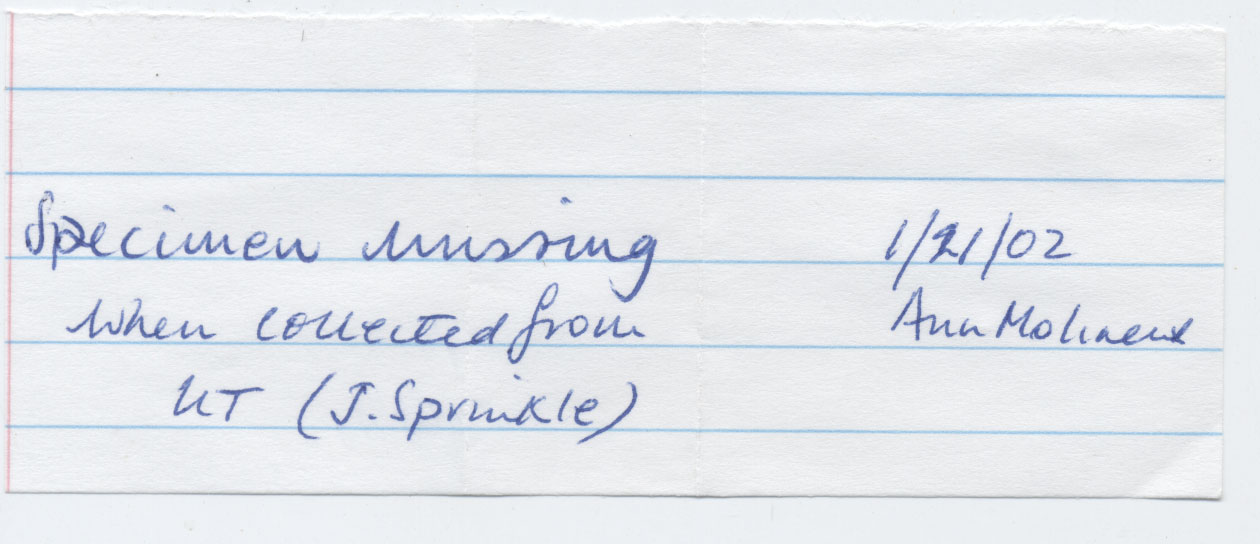 Specimen missing 1/21/02
when collected from Ann Molineux
UT (J. Sprinkle)